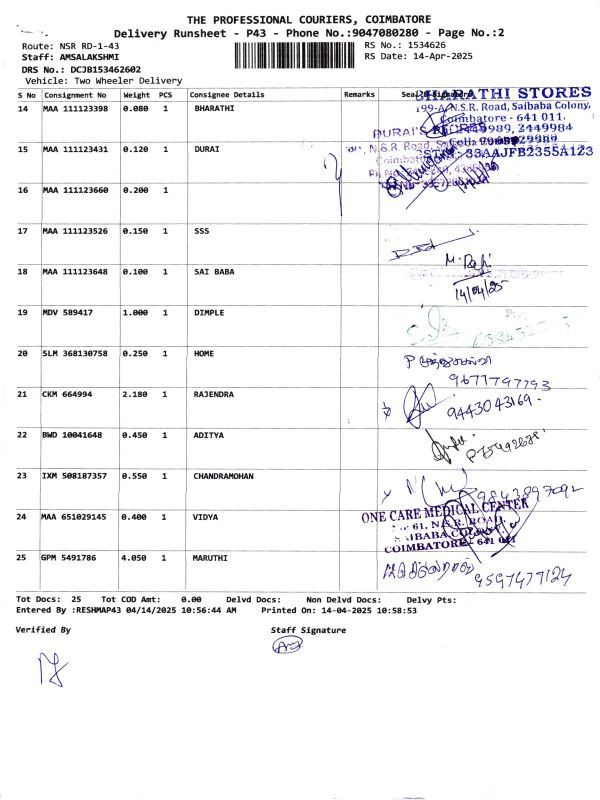 THE PROFESSIONAL COURIERS, COIMBATORE
Delivery Runsheet - P43 - Phone No.:9047080280 - Page No.:2
Route: NSR RD-1-43 RS No.: 1534626
Staff: AMSALAKSHMI RS Date: 14-Apr-2025
DRS No.: DCJB153462602
Vehicle: Two Wheeler Delivery
S No Consignment No Weight PCS Consignee Details Remarks Seal
14 MAA 111123398 0.080 1 BHARATHI
BHARATHI STORES
199-A, N.S.R. Road, Saibaba Colony,
Coimbatore - 641 011.
15 MAA 111123431 0.120 1 DURAI
33AAJFB2355A123
16 MAA 111123660 0.200 1
17 MAA 111123526 0.150 1 SSS
18 MAA 111123648 0.100 1 SAI BABA
14/04/25
19 MDV 589417 1.000 1 DIMPLE
20 SLM 368130758 0.250 1 HOME
9677797793
21 CKM 664994 2.180 1 RAJENDRA
9443043169.
22 BWD 10041648 0.450 1 ADITYA
23 IXM 508187357 0.550 1 CHANDRAMOHAN
9843897092
24 MAA 651029145 0.400 1 VIDYA
ONE CARE MEDICAL CENTER
61, N.S.R. ROAD
SAIBABA COLONY
COIMBATORE - 641 011
25 GPM 5491786 4.050 1 MARUTHI
9597477124
Tot Docs: 25 Tot COD Amt: 0.00 Delvd Docs: Non Delvd Docs: Delvy Pts:
Entered By :RESHMAP43 04/14/2025 10:56:44 AM Printed On: 14-04-2025 10:58:53
Verified By Staff Signature